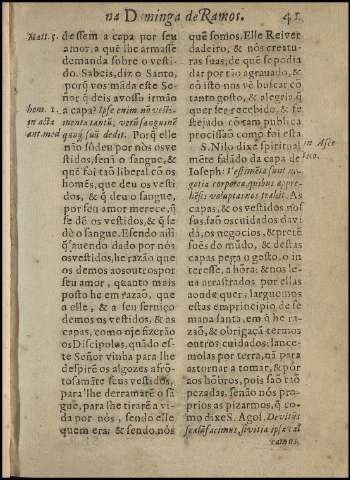 na Dominga de Ramos. 41
Matt. 5.
dessem a capa por seu
amor, a quẽ lhe armasse
demanda sobre o vesti-
do. Sabeis, diz o Santo,
porq̃ vos mãda este Se-
ñor q̃ deis avossõ irmão
hom. 1.
in acta
ant. med
a capa? Ipse enim nõ vesti-
menta tantũ, verũ sanguinẽ
quoq; suũ dedit. Porq̃ elle
não sòdeu por nòs os ve
stidos, senã o sangue, &
quẽ foi taõ liberal cõ os
homẽs, que deu os vesti
dos, & q̃ deu o sangue,
por seu amor merece, q̃
se dè os vestidos, & q̃ se
dè o sangue. E sendo assi
q̃ avendo dado por nòs
os vestidos, he razão que
os demos aos outros por
seu amor, quanto mais
posto he em razaõ, que
a elle, & a seu serviço
demos os vestidos, & as
capas, como oje fizerão
os Discipolos, quãdo es-
te Señor vinha para lhe
despirẽ os algozes afrõ-
tosamẽte seus vestidos,
para lhe derramarẽ o sã
gue, para lhe tirarẽ a vi-
da por nòs, sendo elle
quem era, & sendo nòs
quẽ somos. Elle Rei ver
dadeiro, & nòs creatu
ras suas, de quẽ se podia
dar por tão agravado, &
cõ isto nos vẽ buscar cõ
tanto gosto, & alegria q̃
quer ser recebido, & fe
stejado cõ tam publica
procissaõ como foi esta
S. Nilo dixe spiritual
in Asce
tico.
mẽte falãdo da capa de
Ioseph: Vestimẽta sunt ne
gotia corporea, quibus appre-
hẽsis voluptas nos trahit. As
capas, & os vestidos nos
sos, saõ os cuidados da vi
da, os negocios, & pretẽ
soẽs do mũdo, & destas
capas pega o gosto, o in
teresse, a hõra: & nos le
va arrastrados por ellas
aonde quer, larguemos
estas em principio de se
mana santa, em q̃ he ra-
zaõ, & obrigaçã termos
outros cuidados: lance-
molas por terra, nã para
astornar a tomar, & pòr
aos hõbros, pois saõ taõ
pezadas, senão nòs pro-
prios as pizarmos, q̃ co-
mo dixe S. Agoſ. De vitijs
scalã facimus, si vitia ipsa cal
camus,